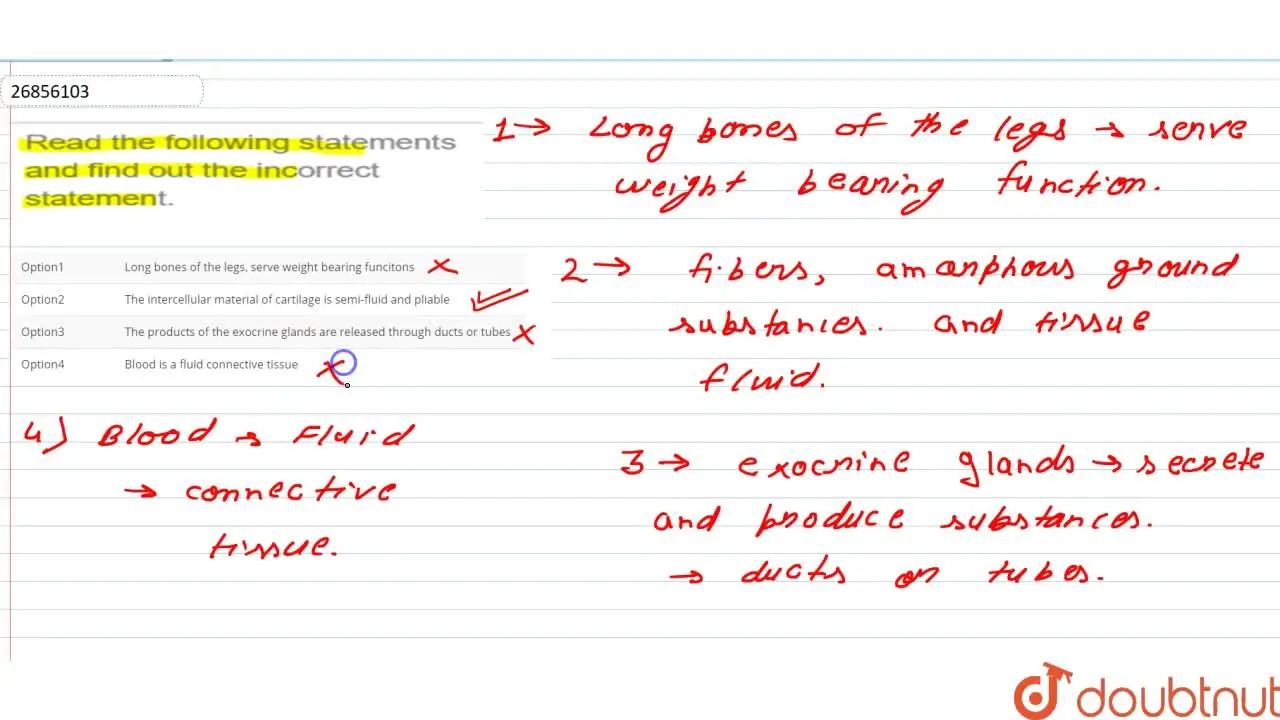 26856103
Read the following statements
and find out the incorrect
statement.
Option1 Long bones of the legs, serve weight bearing funcitons
Option2 The intercellular material of cartilage is semi-fluid and pliable
Option3 The products of the exocrine glands are released through ducts or tubes
Option4 Blood is a fluid connective tissue
1→ Long bones of the legs → serve
weight bearing function.
2→ fibers, amorphous ground
substances. and tissue
fluid.
3→ exocrine glands → secrete
and produce substances.
→ ducts or tubes.
4) Blood → Fluid
→ connective
tissue.
doubtnut